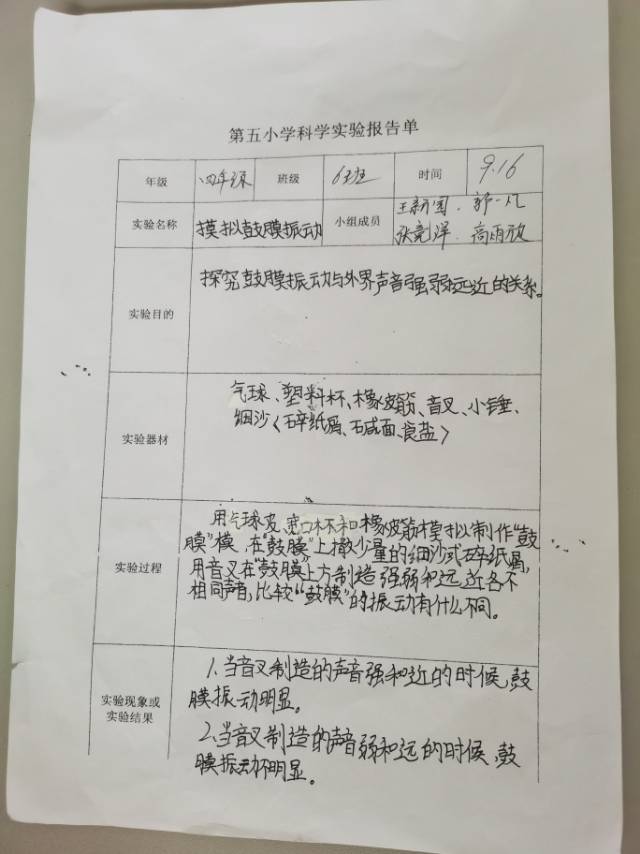 第五小学科学实验报告单
年级 四年级 班级 6班 时间 9.16
实验名称 摸拟鼓膜振动 小组成员 郭一凡
张亮洋 高炳放
实验目的 探究鼓膜振动与外界声音强弱远近的关系。
气球、塑料杯、橡皮筋、音叉、小锤、
实验器材 细沙(碎纸屑、石碱面、食盐)
用气球皮、宽口杯和橡皮筋模拟制作“鼓
膜”模,在“鼓膜”上撒少量的细沙或碎纸屑,
实验过程 用音叉在“鼓膜”上方制造强弱和远近各不
相同声音,比较“鼓膜”的振动有什么不同。
1.当音叉制造的声音强和近的时候,鼓
实验现象或 膜振动明显。
实验结果 2.当音叉制造的声音弱和远的时候,鼓
膜振动不明显。